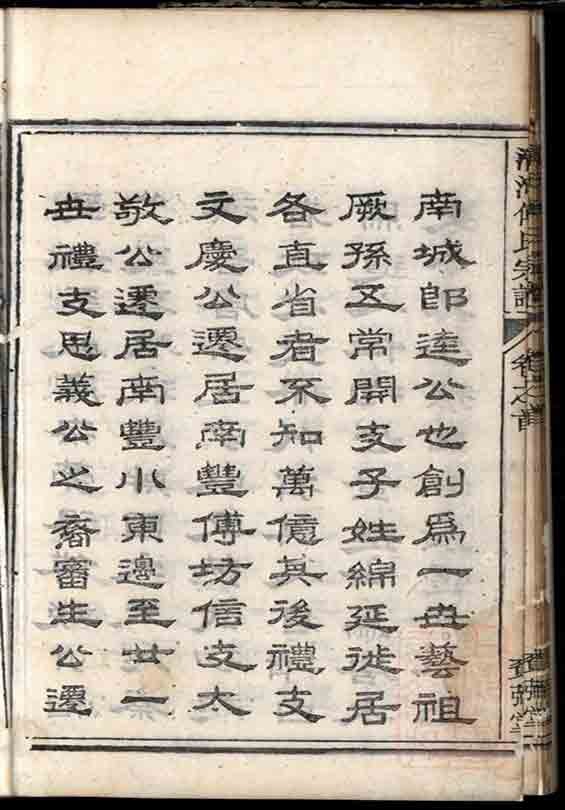 清河傅氏宗譜 卷之首
南城郎達公也創爲一世藝祖
厥孫五常開支子姓綿延徙居
各直省者不知萬億其後禮支
文慶公遷居南豐傅坊信支太
敬公遷居南豐小東邊至廿一
世禮支思義公之裔審生公遷